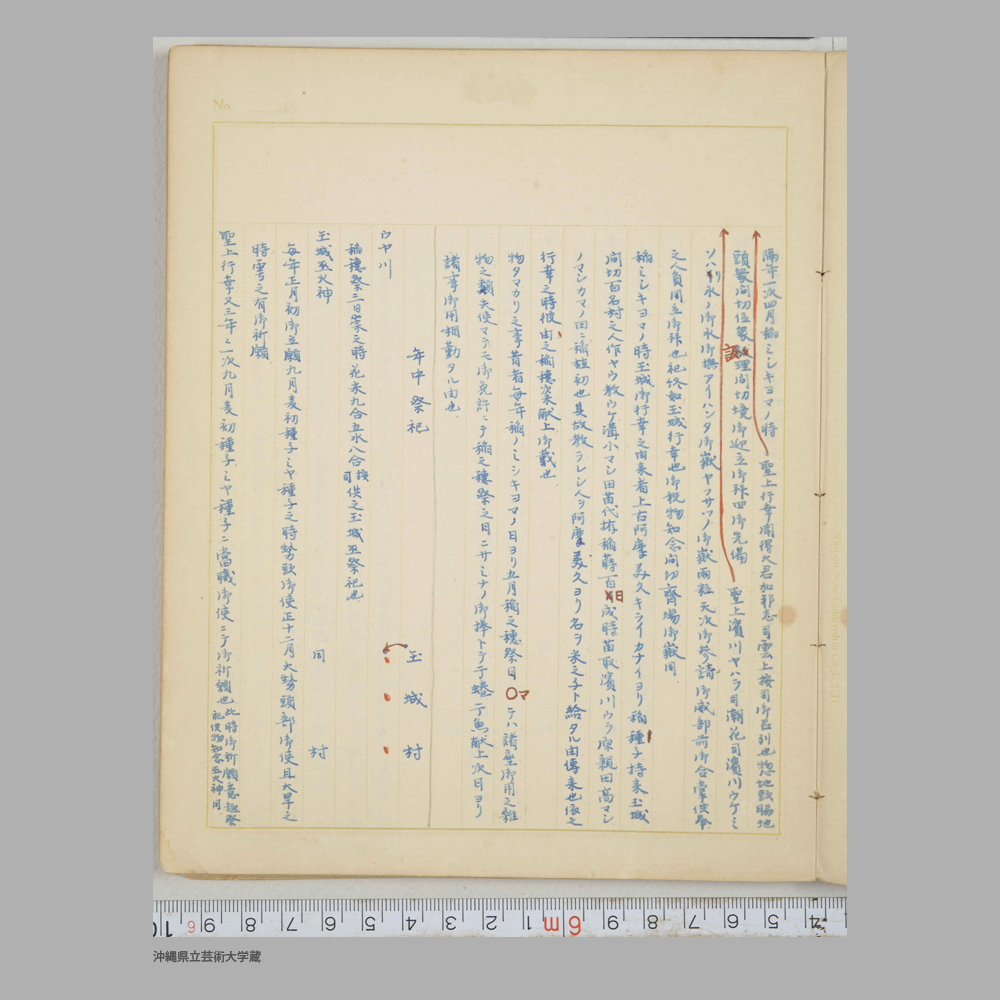 No.
隔年一次四月稲ミシキヨマノ時 聖上行幸聞得大君加那志司雲上按司御召列也惣地頭脇地
頭並間切位衆 理間切境御迎立御拝四御先備 聖上濱川ヤハラ司潮花司濱川ウケミ
ソハリ水ノ御水御撫アイハンタ御嶽ヤフサツノ御嶽雨粒天次御参詣御威部前御合掌供奉
之人員同立御拝也祀終如玉城行幸也御祝物知念間切齋場御嶽同
稲ミシキヨマノ時玉城御行幸之由来者上古阿摩美久キライカナイヨリ稲種子持来玉城
間切百名村之人作ヤウ教ウケ溝小マシ田苗代拵稲蒔百日成時苗取濱川ウラ原親田高マシ
ノマシカマノ田ニ稲植初也其故教ラレシ人ヲ阿摩美久ヨリ名ヲ米之子ト給タル由傳来也依之
行幸之時彼由之稲穂楽献上御戴也
物タマカリ之事昔者毎年稲ノミシキヨマノ日ヨリ五月稲之穂祭日マテハ諸座御用之雑
物之類大使マテモ御免許ニテ稲之穂祭之日ニサミナノ御捧トテ于蜷于魚献上次日ヨリ
諸事御用相勤タル由也
年中祭祀
玉城村
ウヤ川
稲穂祭三日崇之時花米九合五水八合按司供之玉城巫祭祀也
玉城巫火神
同村
毎年正月初御立願九月麦初種子ミヤ種子之時勢頭御使正十二月大勢頭部御使且大旱之
時雩之有御祈願
聖上行幸又三年ニ一次九月麦初種子ミヤ種子ニ當職御使ニテ御祈願也此時御祈願意趣祭
祀供物知念巫火神同
10 9 8 7 6 5 4 3 2 1 6m 9 8 7 6 5 4
沖縄県立芸術大学蔵